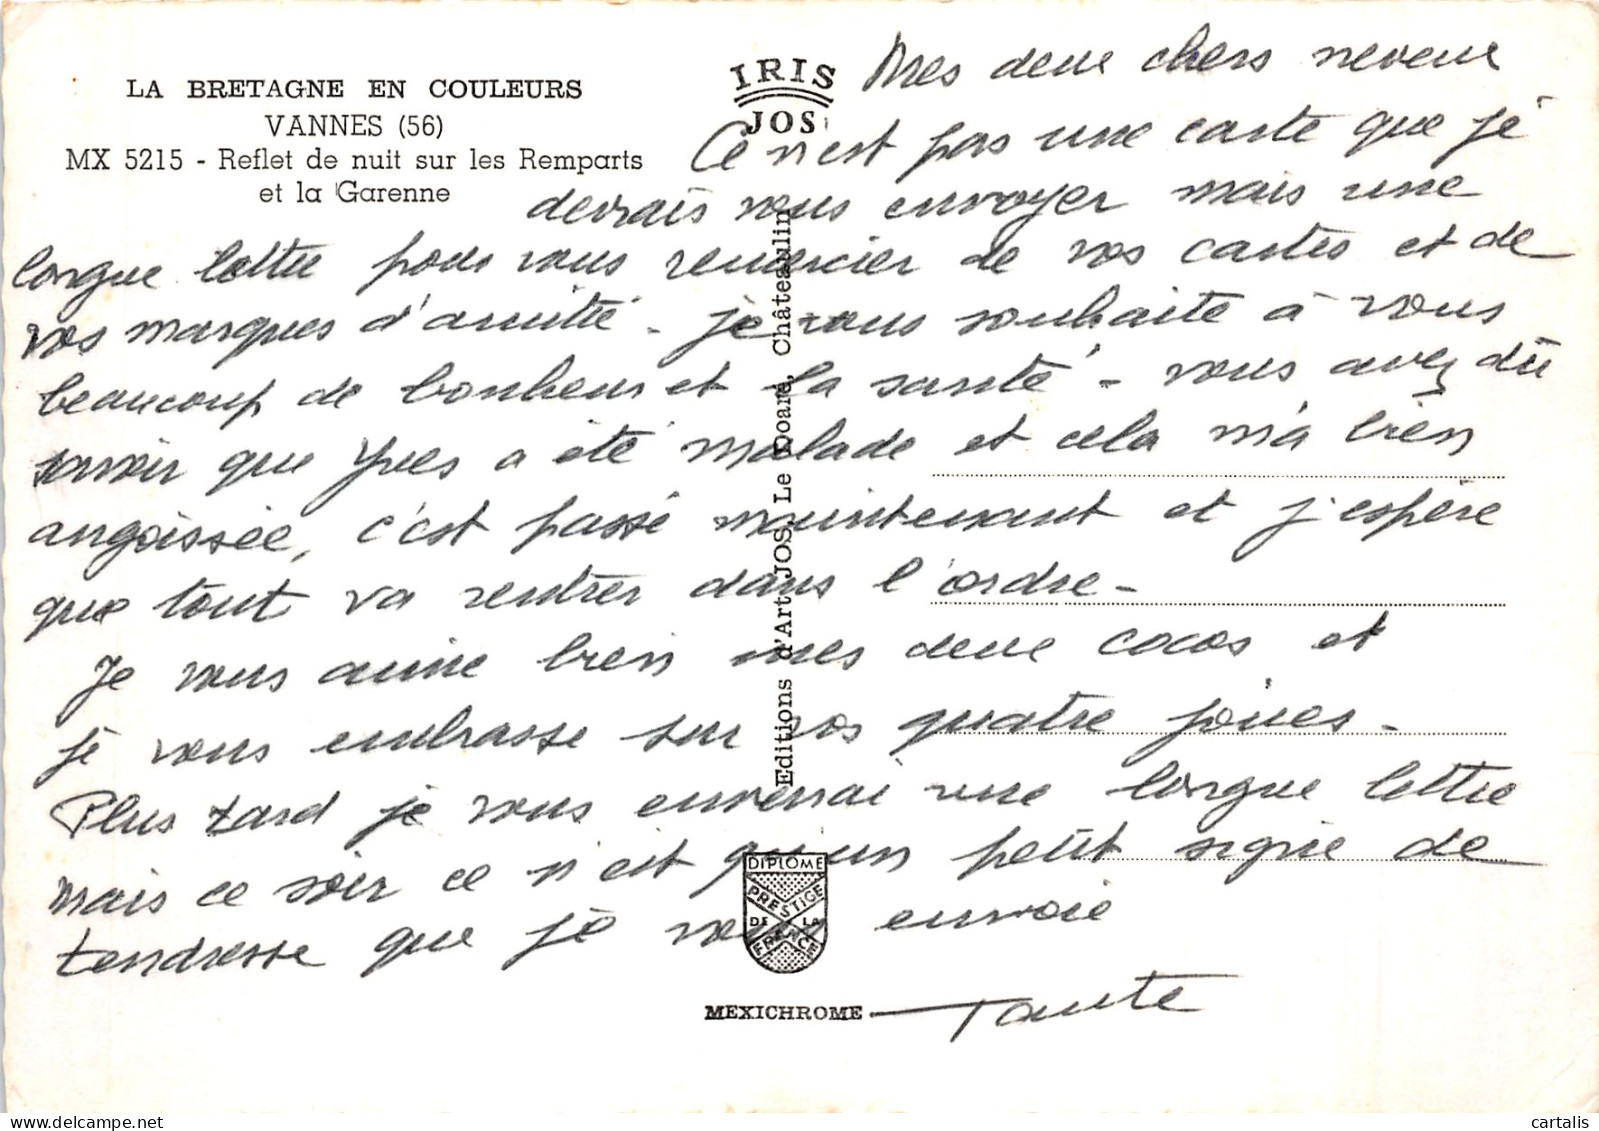 LA BRETAGNE EN COULEURS
VANNES (56)
MX 5215 - Reflet de nuit sur les Remparts
et la Garenne
IRIS
JOS
Mes deux chers neveux
Ce n'est pas une carte que je
devrais vous envoyer mais une
longue lettre pour vous remercier de vos cartes et de
vos marques d'amitié - je vous souhaite à vous
beaucoup de bonheur et la santé - vous avez dû
savoir que Yves a été malade et cela m'a bien
angoissée, c'est passé maintenant et j'espère
que tout va rentrer dans l'ordre -
Je vous aime bien mes deux cocos et
je vous embrasse sur vos quatre joues -
Plus tard je vous enverrai une longue lettre
mais ce soir ce n'est qu'un petit signe de
tendresse que je vous envoie
Tante
Editions d'Art JOS Le Doaré, Châteaulin
DIPLOME
PRESTIGE
DE LA
FRANCE
MEXICHROME
cartalis